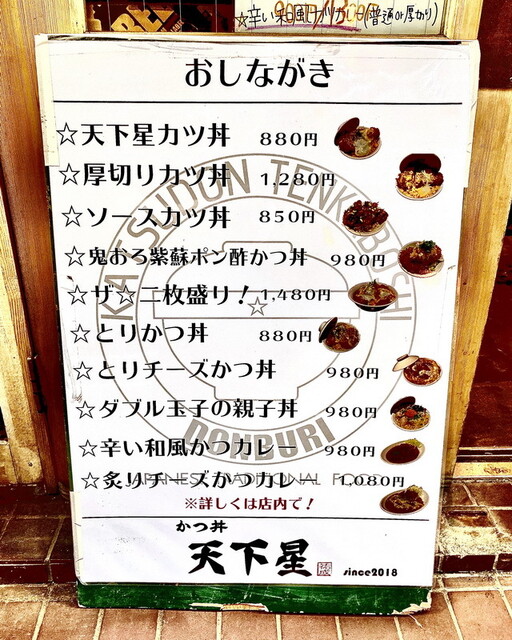 ☆辛い和風カツカレー(普通or厚切り)
おしながき
☆天下星カツ丼 880円
☆厚切りカツ丼 1,280円
☆ソースカツ丼 850円
☆鬼おろ紫蘇ポン酢かつ丼 980円
☆ザ☆二枚盛り! 1,480円
☆とりかつ丼 880円
☆とりチーズかつ丼 980円
☆ダブル玉子の親子丼 980円
☆辛い和風かつカレー 980円
☆炙りチーズかつカレー 1,080円
※詳しくは店内で!
かつ丼
天下星 since2018
KATSUDON TENKABOSHI
DONBURI
JAPANESE TRADITIONAL FOOD